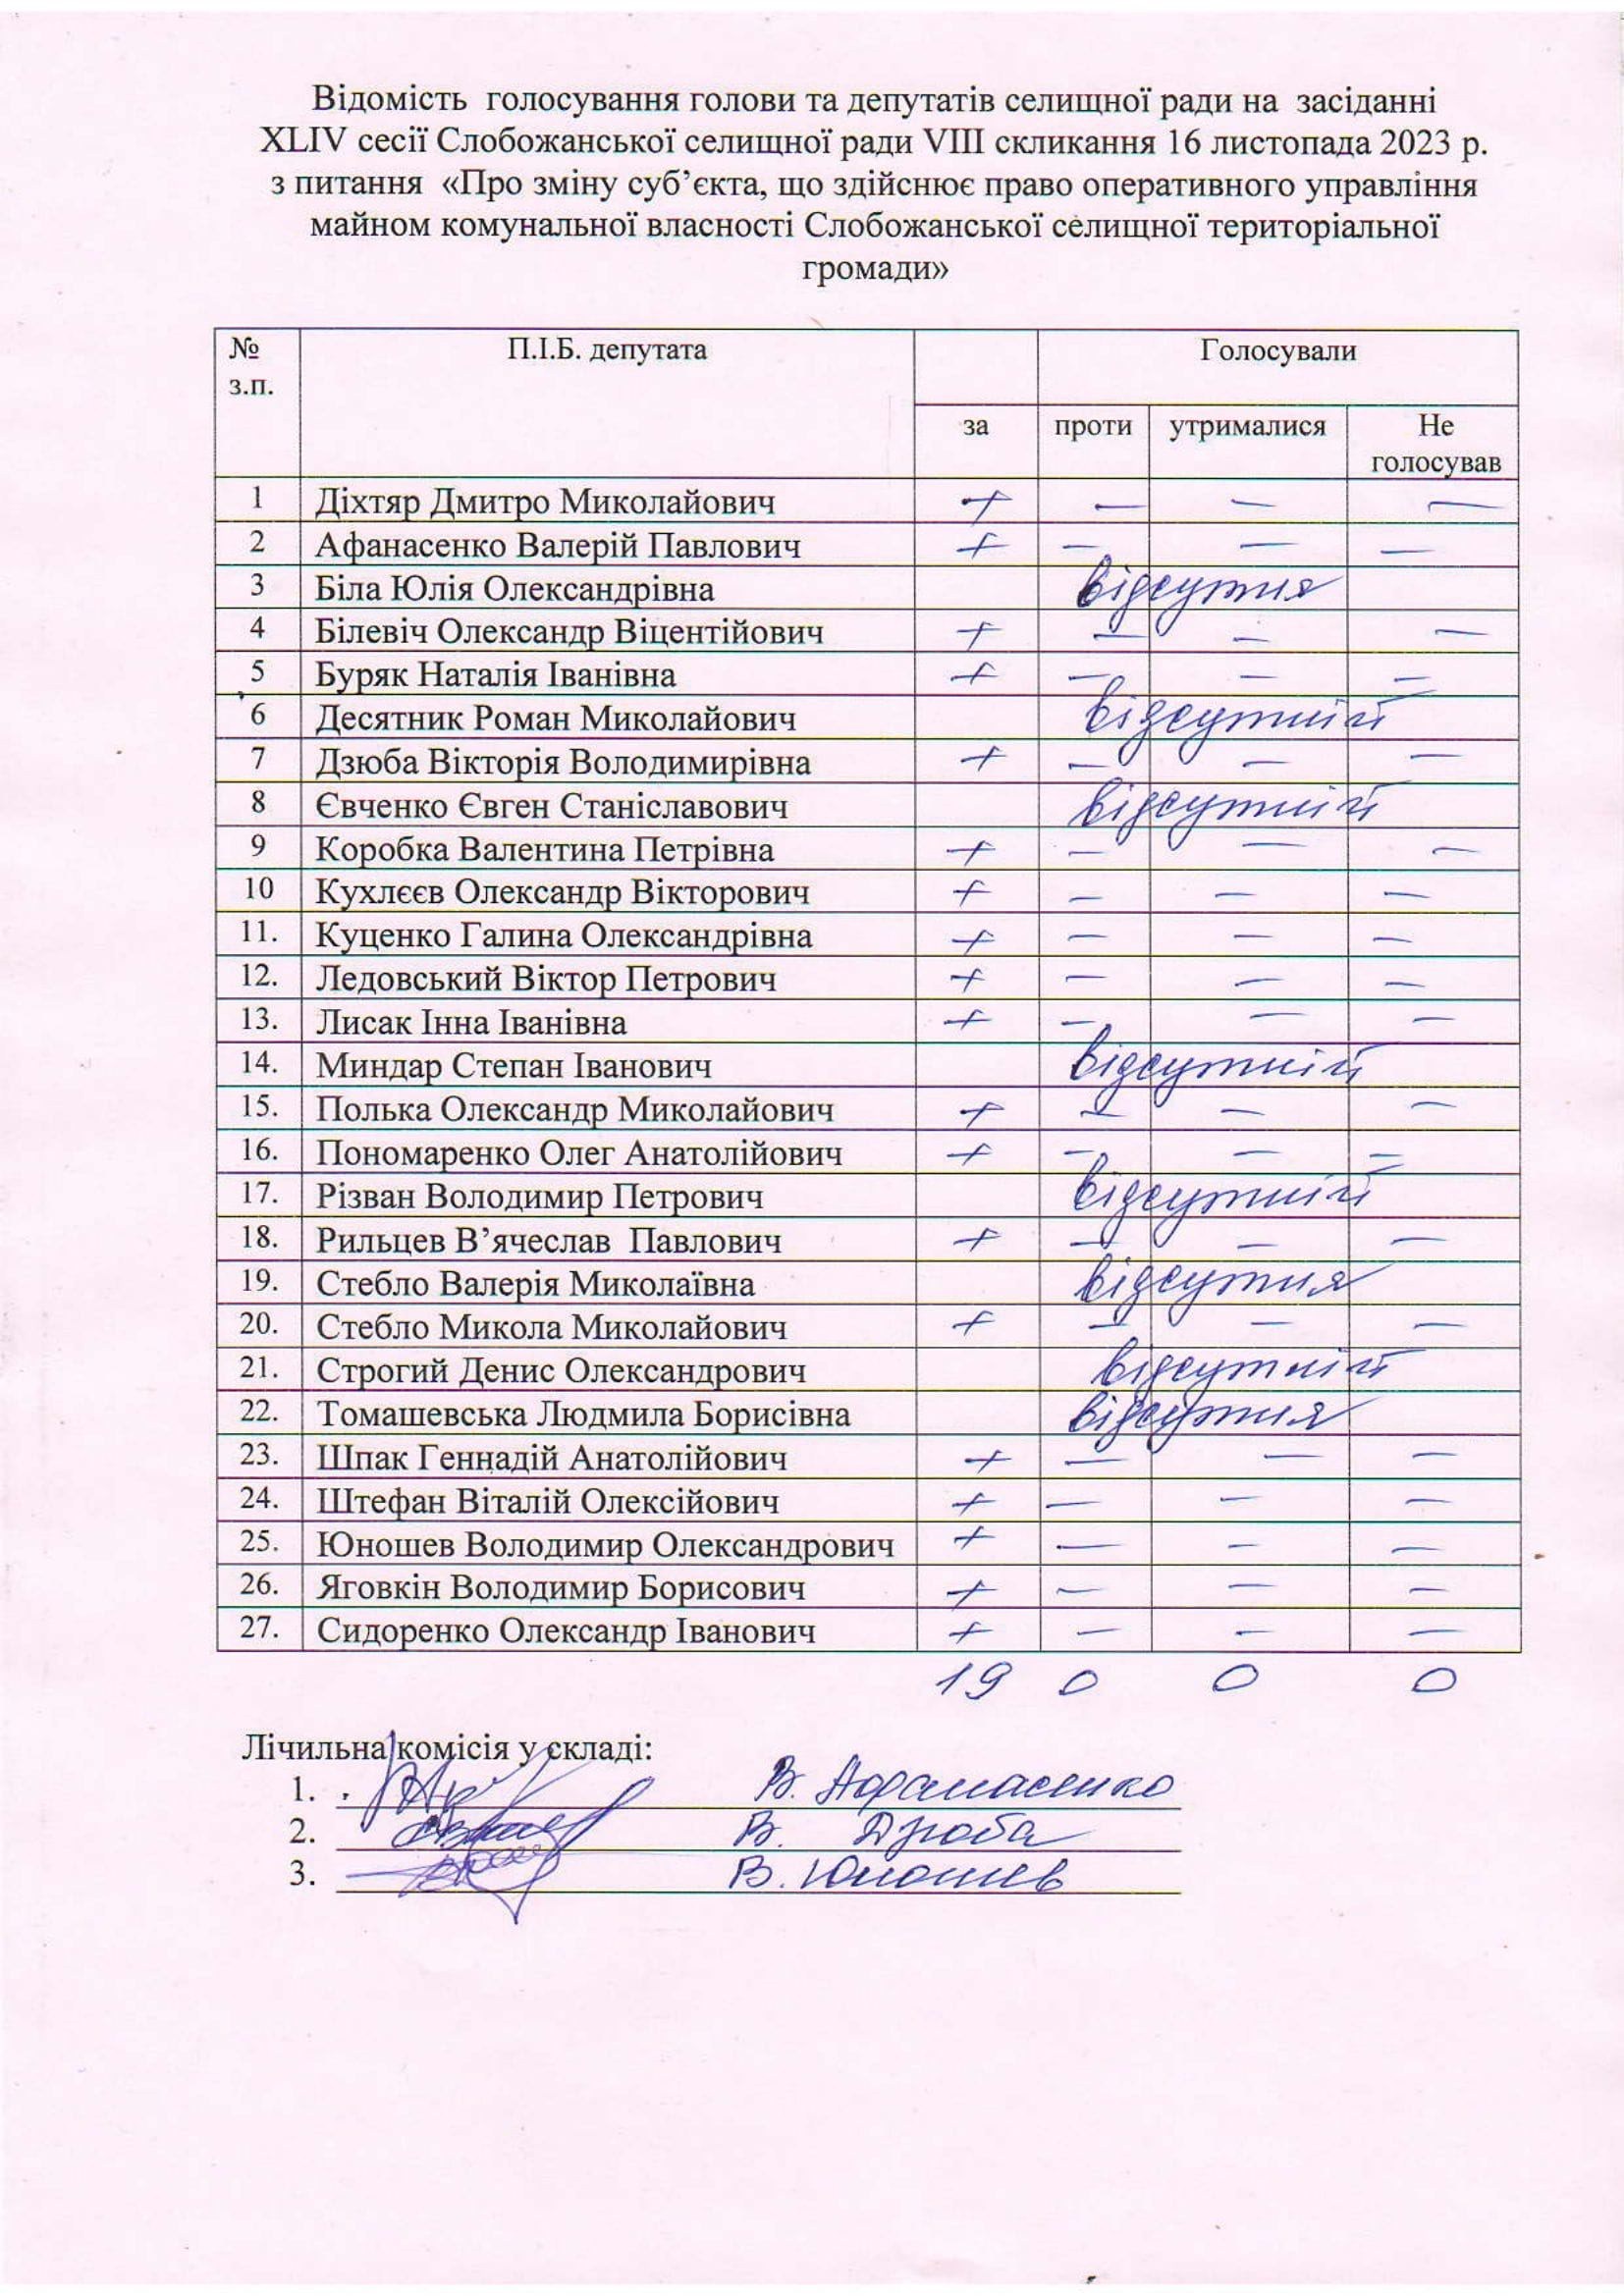 Відомість голосування голови та депутатів селищної ради на засіданні
XLIV сесії Слобожанської селищної ради VIII скликання 16 листопада 2023 р.
з питання «Про зміну суб’єкта, що здійснює право оперативного управління
майном комунальної власності Слобожанської селищної територіальної
громади»
№ з.п. П.І.Б. депутата Голосували
за проти утрималися Не голосував
1 Діхтяр Дмитро Миколайович + — — —
2 Афанасенко Валерій Павлович + — — —
3 Біла Юлія Олександрівна відсутня
4 Білевіч Олександр Віцентійович + — — —
5 Буряк Наталія Іванівна + — — —
6 Десятник Роман Миколайович відсутній
7 Дзюба Вікторія Володимирівна + — — —
8 Євченко Євген Станіславович відсутній
9 Коробка Валентина Петрівна + — — —
10 Кухлєєв Олександр Вікторович + — — —
11. Куценко Галина Олександрівна + — — —
12. Ледовський Віктор Петрович + — — —
13. Лисак Інна Іванівна + — — —
14. Миндар Степан Іванович відсутній
15. Полька Олександр Миколайович + — — —
16. Пономаренко Олег Анатолійович + — — —
17. Різван Володимир Петрович відсутній
18. Рильцев В’ячеслав Павлович + — — —
19. Стебло Валерія Миколаївна відсутня
20. Стебло Микола Миколайович + — — —
21. Строгий Денис Олександрович відсутній
22. Томашевська Людмила Борисівна відсутня
23. Шпак Геннадій Анатолійович + — — —
24. Штефан Віталій Олексійович + — — —
25. Юношев Володимир Олександрович + — — —
26. Яговкін Володимир Борисович + — — —
27. Сидоренко Олександр Іванович + — — —
19 0 0 0
Лічильна комісія у складі:
1. В. Афанасенко
2. В. Дзюба
3. В. Юношев